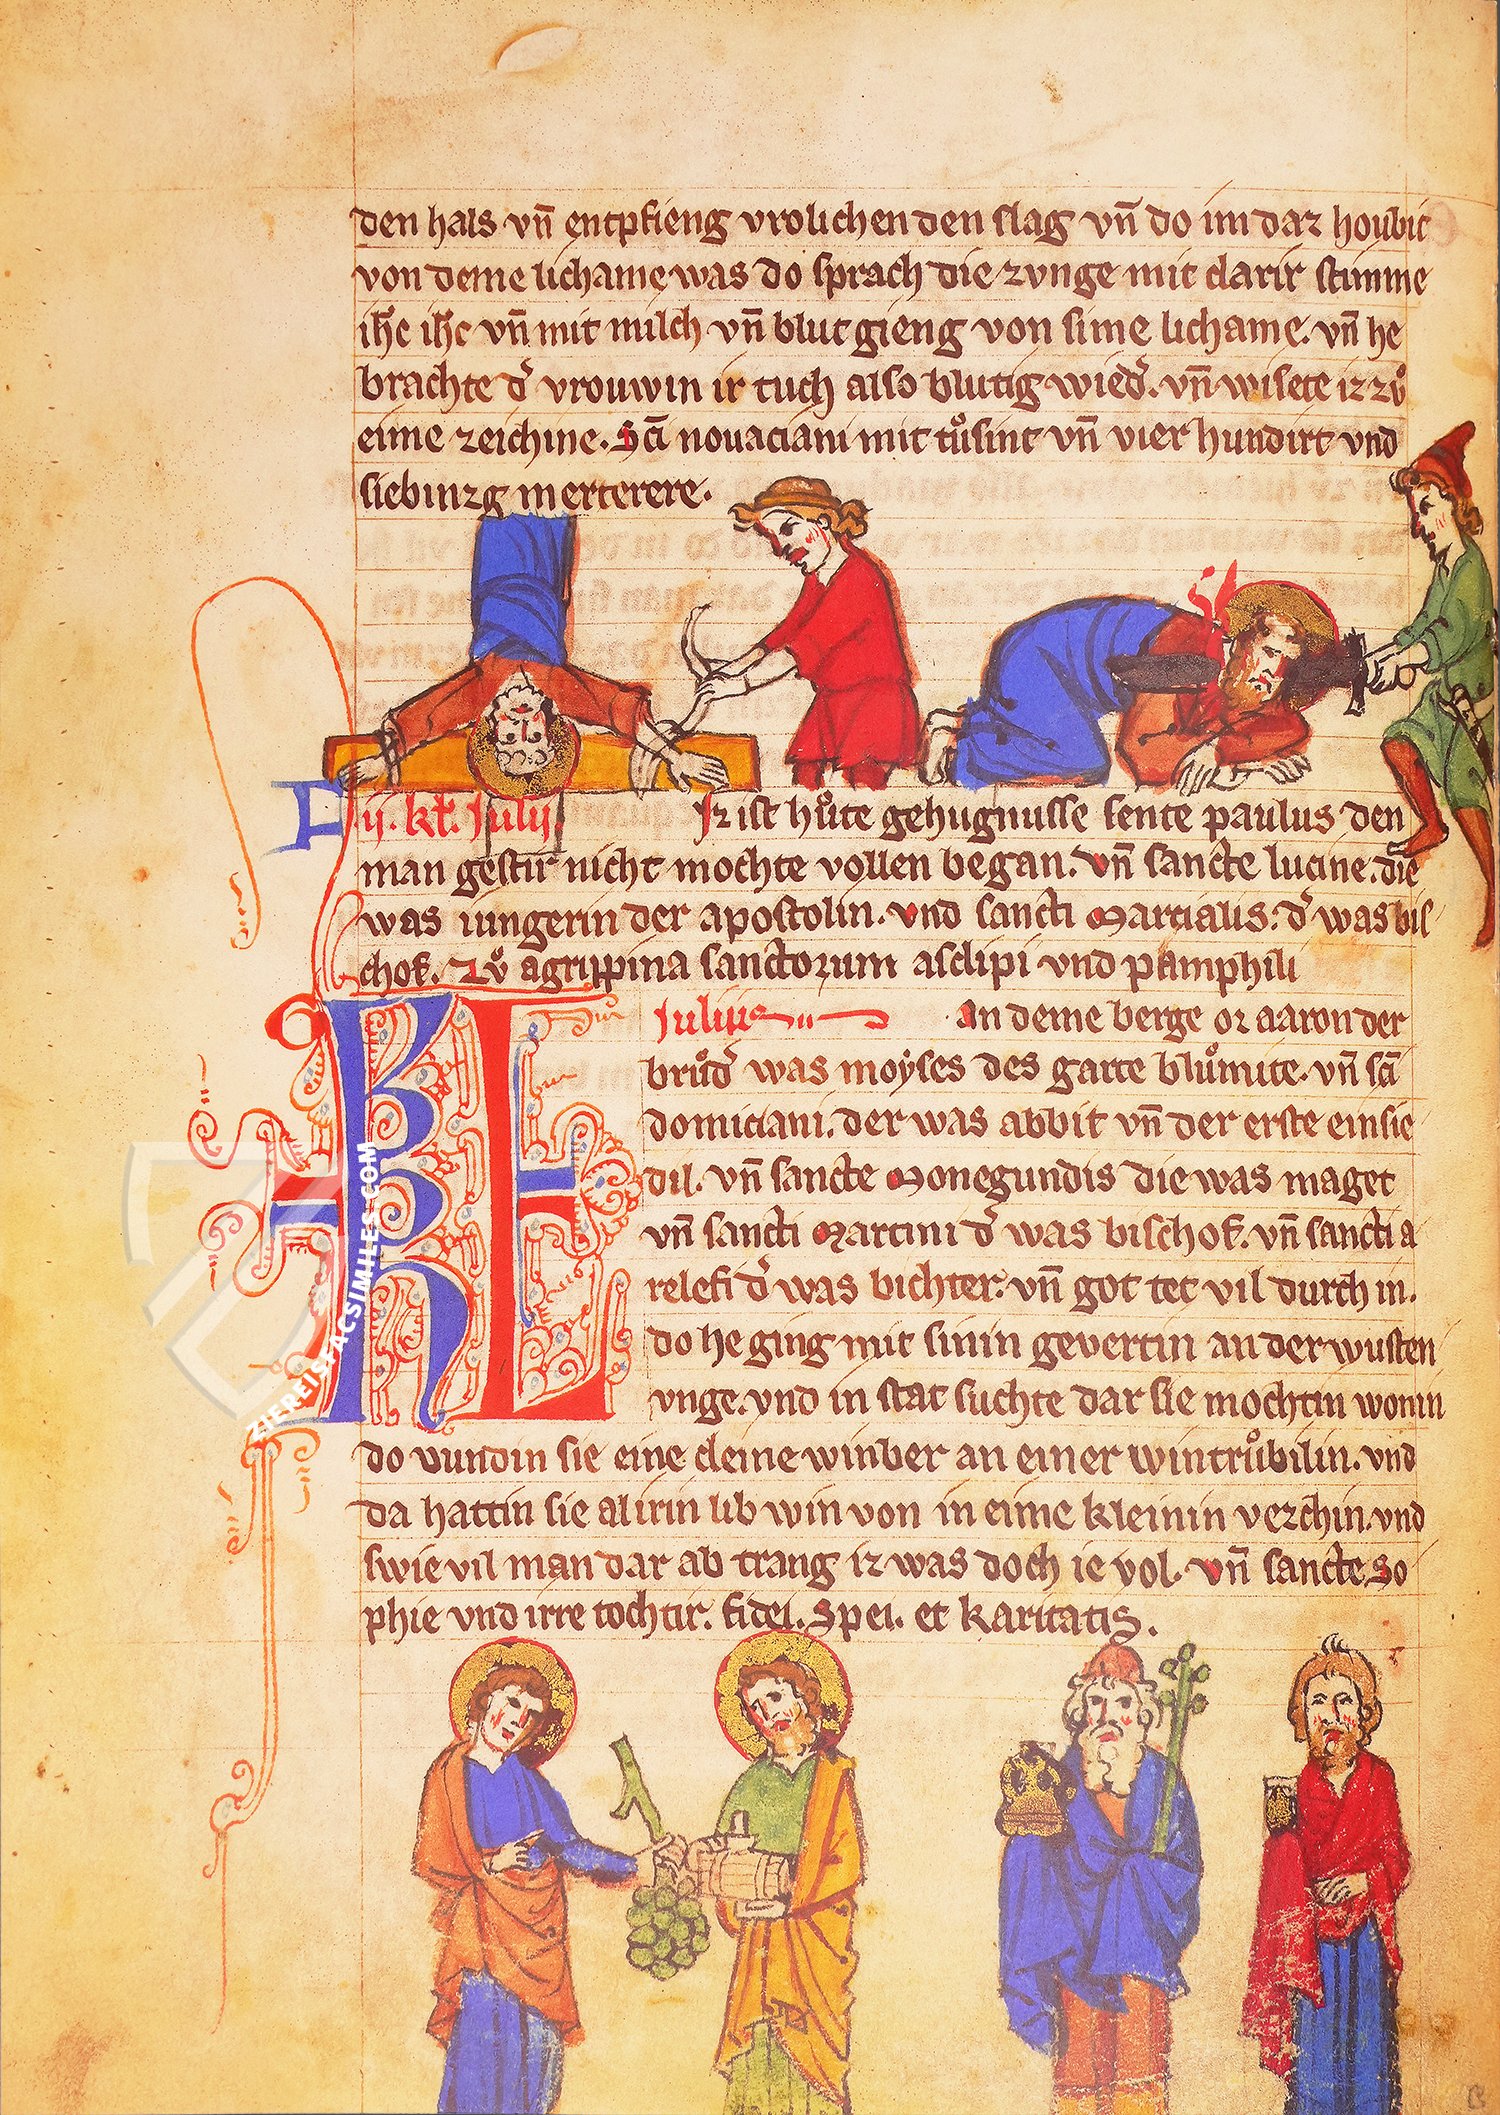 den hals vn̄ entpfieng vrolichen den slag vn̄ do im daz houbit
von deme lichame was do sprach die zvnge mit clarir stimme
ih̄c ih̄c vn̄ mit milch vn̄ blut gieng von sime lichame. vn̄ he
brachte d̓ vrouwin ir tuch also blutig wied̓. vn̄ wisete iz zů
eime zeichine. Sc̄i nouaciani mit tůsint vn̄ vier hundirt vnd
siebinzg merterere.
P ij. kł. Julij. Iz ist hůte gehugnusse sente paulus den
man gestir nicht mochte vollen began. Vn̄ sancte lucine. die
was iungerin der apostolin. Vnd sancti Marcialis. d̓ was bis
chof. Zů agrippina sanctorum asclipi vnd pamphili
KL Julius An deme berge or aaron der
brůd̓ was moyses des garte blůmite. vn̄ sc̄i
domiciani. der was abbit vn̄ der erste einsie
dil. vn̄ sancte Monegundis die was maget
vn̄ sancti Martini d̓ was bischof. vn̄ sancti a
relefi d̓ was bichter. vn̄ got tet vil durch in.
do he ging mit sinin gevertin an der wusten
vnge. vnd in stat suchte dar sie mochtin wonin
do vundin sie eine cleine winber an einer wintrůbilin. vnd
da hattin sie al irin lib win von in eime kleinin vezchin. vnd
swie vil man dar ab trang iz was doch ie vol. Vn̄ sancte So
phie vnd irre tochtir. fidei. Spei. et karitatis.
ZIEREISFACSIMILES.COM